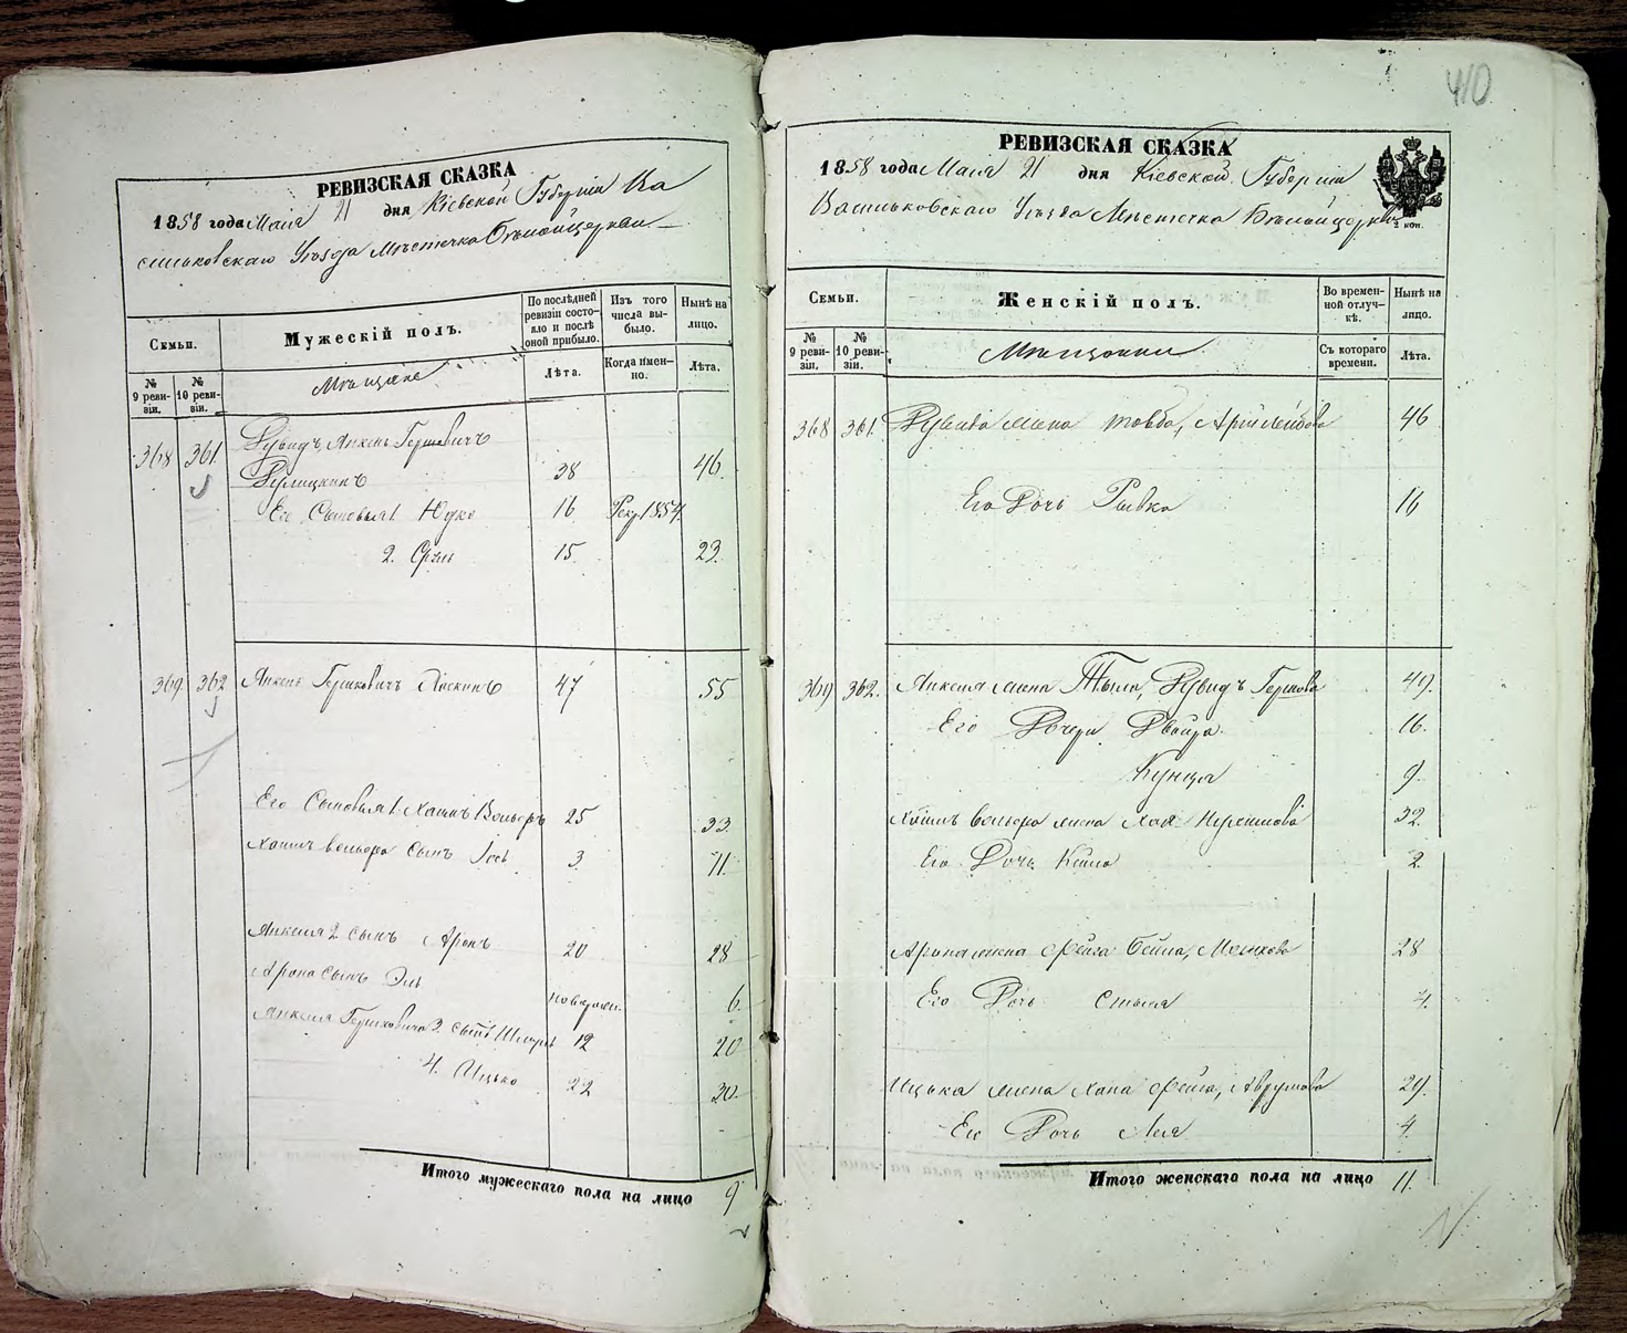 410
РЕВИЗСКАЯ СКАЗКА
1858 года Маія 21 дня Кіевской Губерніи Ва
сильковскаго Уѣзда Мѣстечка Бѣлойцеркви
Семьи.
Мужескій полъ.
По послѣдней ревизіи состояло и послѣ оной прибыло.
Изъ того числа выбыло.
Нынѣ на лицо.
№ 9 ревизіи.
№ 10 ревизіи.
Мѣщане
Лѣта.
Когда именно.
Лѣта.
368 361. Дувидъ, Янкель Гершковичъ
38 46.
Его Сыновья 1. Юдко 16 Рекр. 1854.
2. Сруль 15 23.
369 362 Янкель Гершковичъ 47 55
Его Сыновья 1. Хаимъ Вольфъ 25 33.
Хаимъ вольфа Сынъ Іось 3 11.
Янкеля 2 сынъ Аронъ 20 28
Арона сынъ Эль новорожд. 6.
Янкеля Гершковича 3. сынъ 12 20
4. Ицько 22 30.
Итого мужескаго пола на лицо 9
РЕВИЗСКАЯ СКАЗКА
1858 года Маія 21 дня Кіевской Губерніи
Васильковскаго Уѣзда Мѣстечка Бѣлойцеркви
2 коп.
Семьи.
Женскій полъ.
Во временной отлучкѣ.
Нынѣ на лицо.
№ 9 ревизіи.
№ 10 ревизіи.
Мѣщанки
Съ котораго времени.
Лѣта.
368 361. Дувида жена Товба, 46
Его Дочь Рывка 16
369 362. Янкеля жена Дувидъ Гершкова 49.
Его Дочери Двойра 16.
Кунця 9.
Хаимъ вольфа жена Хая 32.
Его Дочь Кейла 2.
Арона жена Фейга Бейла, 28
Его Дочь 4.
Ицька жена Хана Фейга, Аврумова 29.
Его Дочь Лея 4.
Итого женскаго пола на лицо 11.